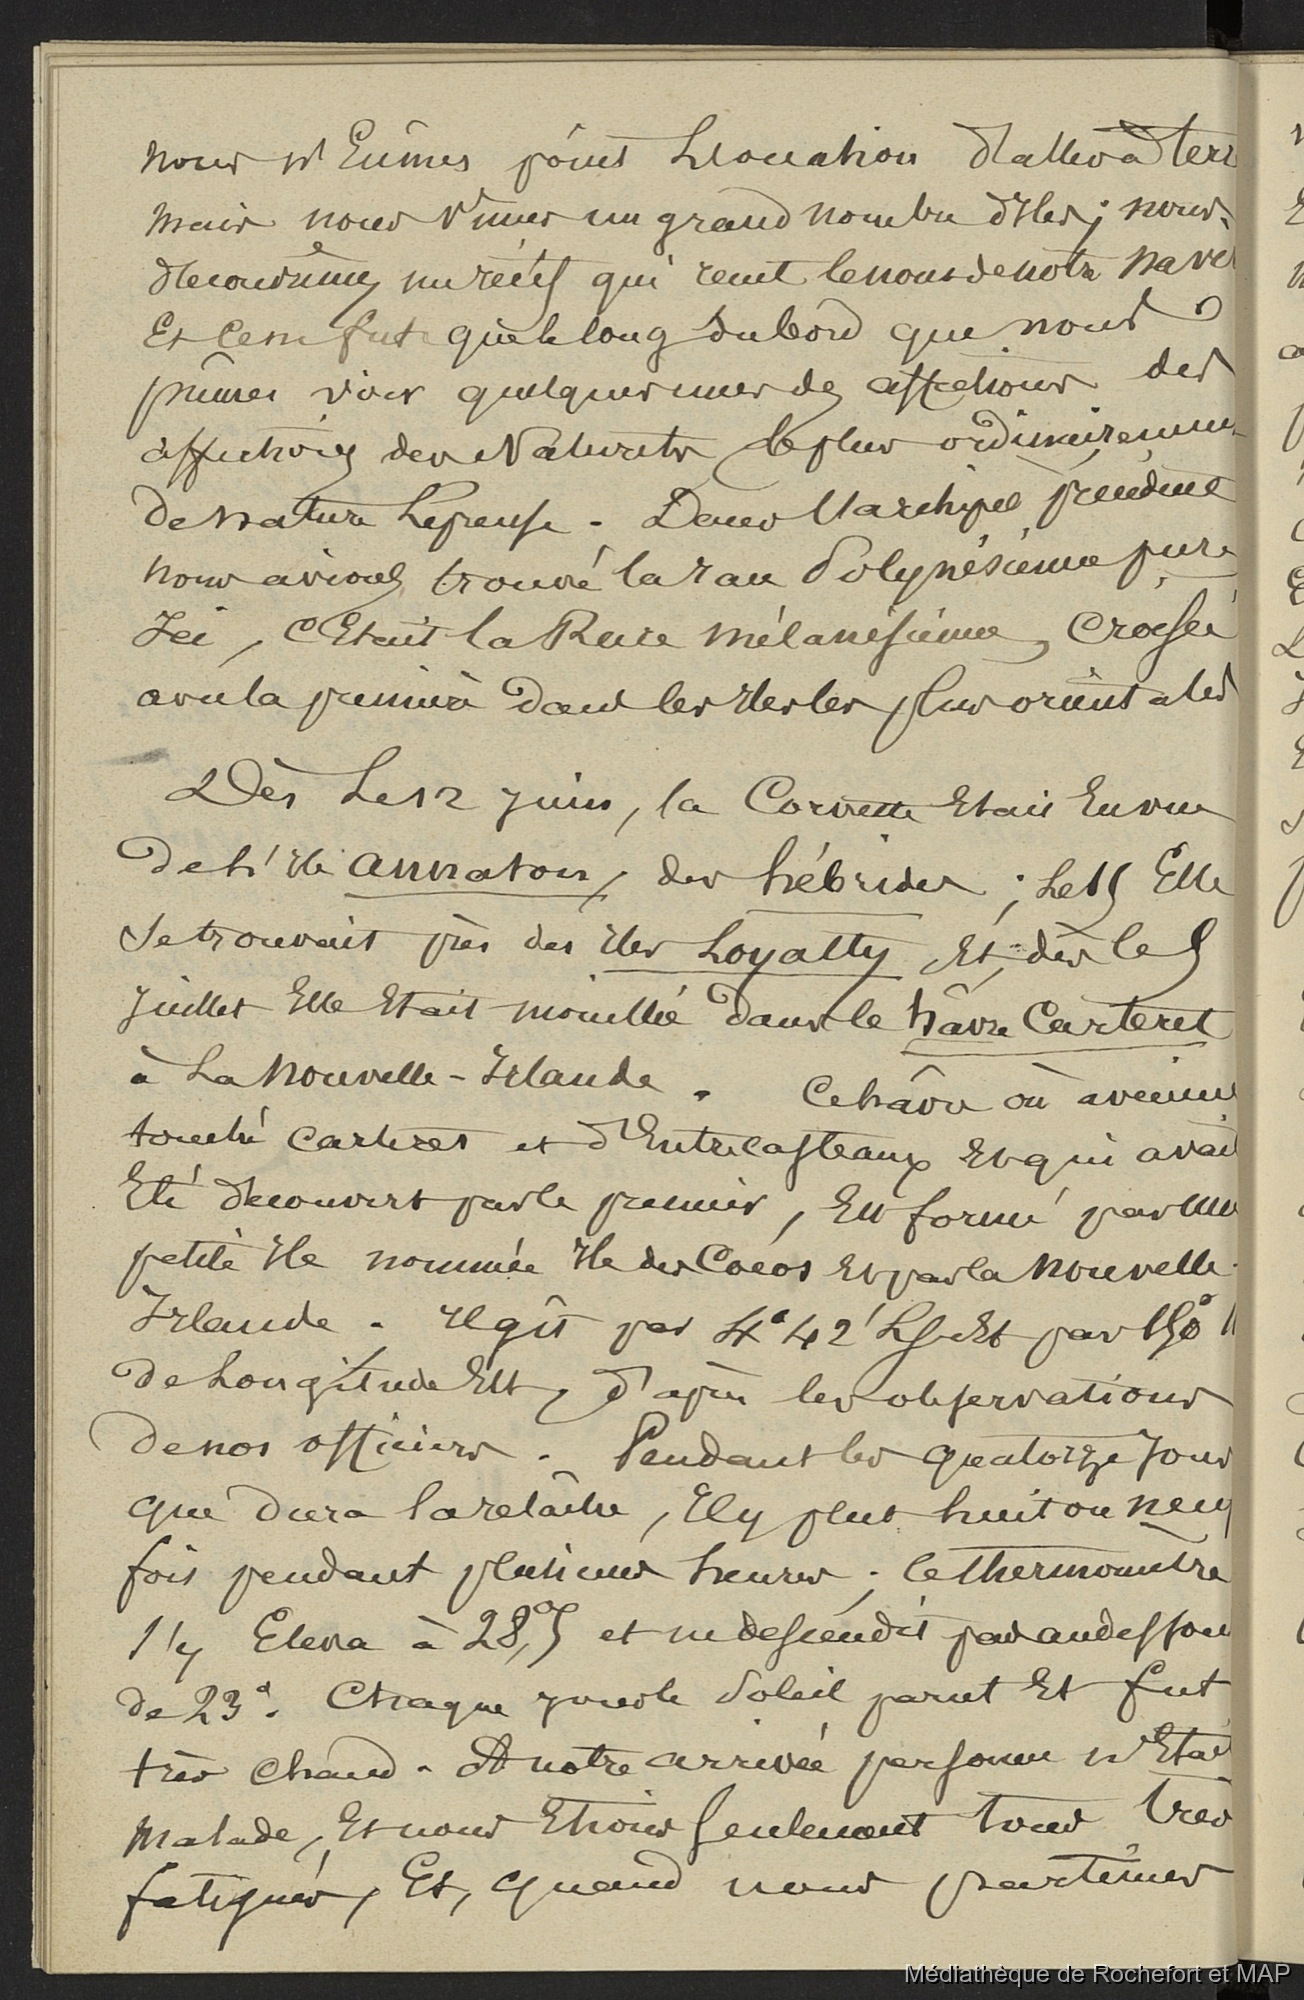 nous n'Eûmes point L'occation d'aller à terr
mais nous vîmes un grand nombre d'Iles ; nous
découvrîmes un récif qui recut le nom de notre nave
Et Ce ne fut que le long du bord que nous
pûmes voir quelques unes des affections des
affections des Naturels le plus ordinairement
de nature Lepreuse. Dans l'archipel précédent
nous avions trouvé la race Polynésienne pure
Ici, c'Etait la Race mélanésienne, Croisée
avec la première dans les Iles les plus orientales
Dès Le 12 Juin, la Corvette Etait En vue
de L'Ile annatom, des hébrides ; Le 15 Elle
se trouvait près des Iles Loyalty, Et, dès le 5
Juillet Elle Etait mouillée dans le hâvre Carteret
à La Nouvelle-Irlande. Ce hâvre où avaient
touché Carteret et d'Entrecasteaux Et qui avait
Eté découvert par le premier, Est formé par une
petite Ile nommée Ile des Cocos Et par la Nouvelle-
Irlande. Il gît par 4° 42' L.S. Et par 150°
de Longitude Est, d'après les observations
de nos officiers. Pendant les quatorze Jours
que dura la relâche, Il y plut huit ou neuf
fois pendant plusieurs heures ; le thermomètre
s'y Eleva à 28°,5 et ne descendit pas au dessous
de 23°. Chaque jour le Soleil parut Et fut
très chaud. A notre arrivée personne n'Etait
malade, Et nous Etions seulement tous très
fatigués, Et, quand nous partîmes
Médiathèque de Rochefort et MAP